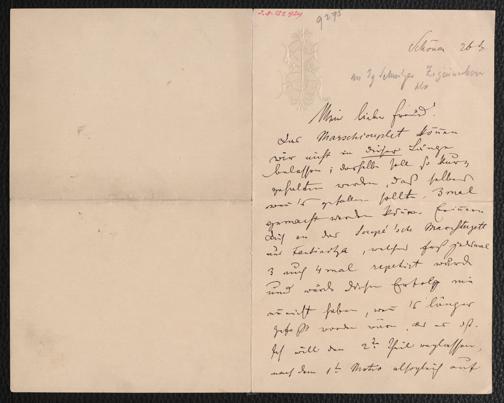 9293
Schönau 26/
an Ig Schnitzer Zigeunerbaron
Mein lieber Freund!
Das Marschcouplet können
wir nicht in dieser Länge
belassen; dasselbe soll so kurz
gehalten werden, daß selbes
wenn's gefallen sollte, 3mal
gemacht werden könne. Erinnere
Dich an das Suppé'sche Marschterzett
aus Fatinitza, welches fast jedesmal
3 auch 4mal repetirt wurde
und würde diesen Erfolg nie
erreicht haben, wenn 's länger
gefaßt worden wäre, als es ist.
Ich will den 2ten Theil weglassen,
nach dem 1ten Motiv allsogleich auf